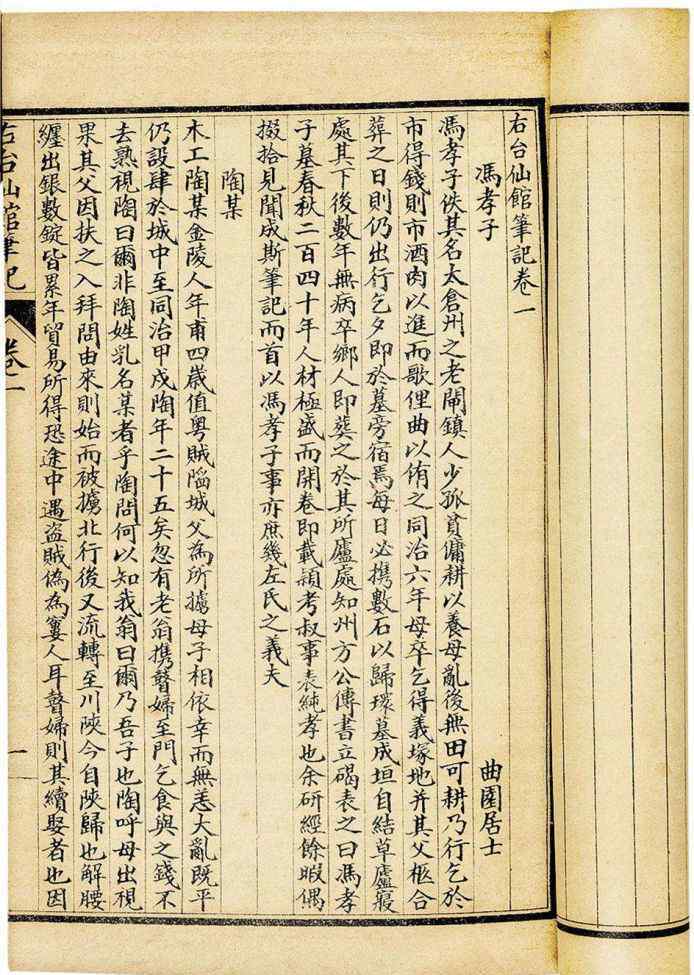 右台仙館筆記卷一
馮孝子
曲園居士
馮孝子佚其名太倉州之老閘鎮人少孤貧傭耕以養母亂後無田可耕乃行乞於
市得錢則市酒肉以進而歌俚曲以侑之同治六年母卒乞得義塚地并其父柩合
葬之日則仍出行乞夕即於墓旁宿焉每日必携數石以歸環墓成垣自結草廬寢
處其下後數年無病卒鄉人即葬之於其所廬處知州方公傳書立碣表之曰馮孝
子墓春秋二百四十年人材極盛而開卷即載潁考叔事表純孝也余研經餘暇偶
掇拾見聞成斯筆記而首以馮孝子事亦庶幾左氏之義夫
陶某
木工陶某金陵人年甫四歲值粤賊陷城父為所擄母子相依幸而無恙大亂既平
仍設肆於城中至同治甲戌陶年二十五矣忽有老翁携瞽婦至門乞食與之錢不
去熟視陶曰爾非陶姓乳名某者乎陶問何以知我翁曰爾乃吾子也陶呼母出視
果其父因扶之入拜問由來則始而被擄北行後又流轉至川陝今自陝歸也解腰
纏出銀數錠皆累年貿易所得恐途中遇盜賊偽為窶人耳瞽婦則其續娶者也因
右台仙館筆記
卷一
一